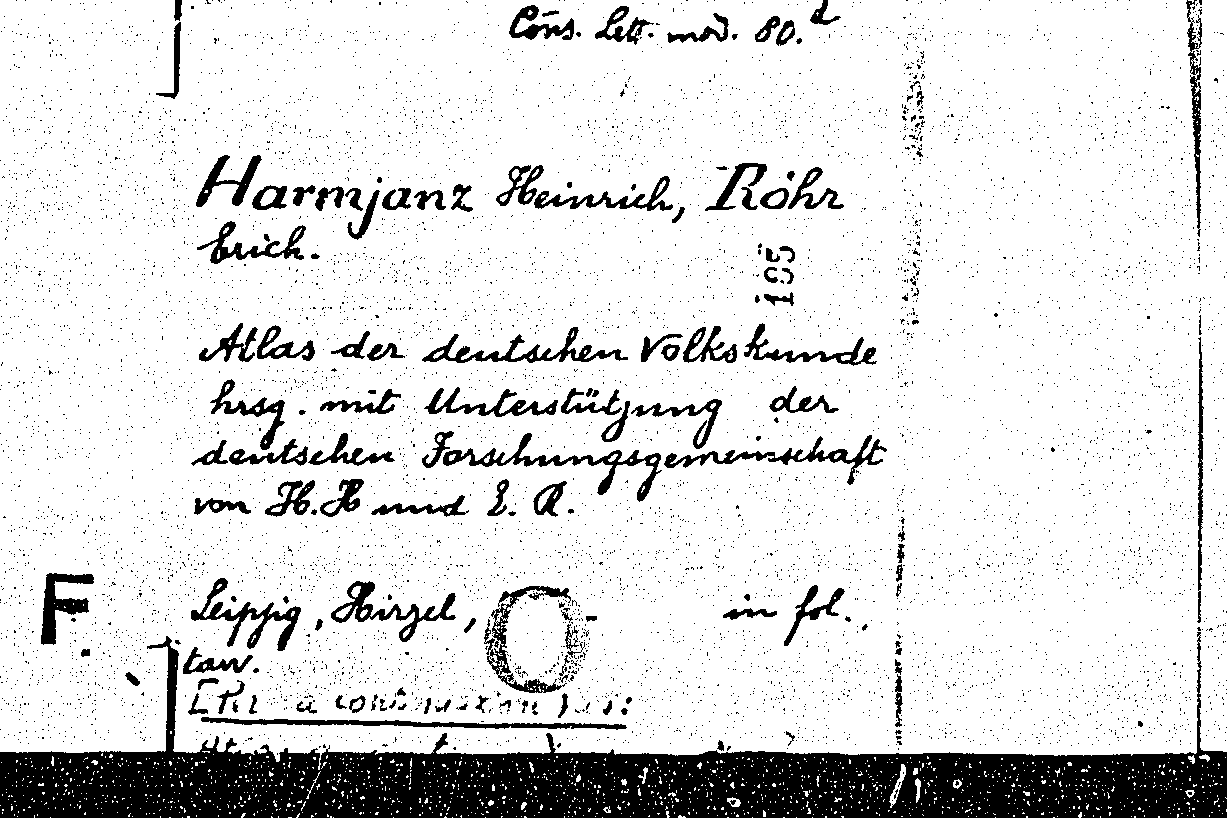 Cons. Lett. mod. 80.d
Harmjanz Heinrich, Röhr
Erich.
195
Atlas der deutschen Volkskunde
hrsg. mit Unterstützung der
deutschen Forschungsgemeinschaft
von H. H und E. R.
F
Leipzig, Hirzel, O - in fol.,
tav.
[Per la continuazione